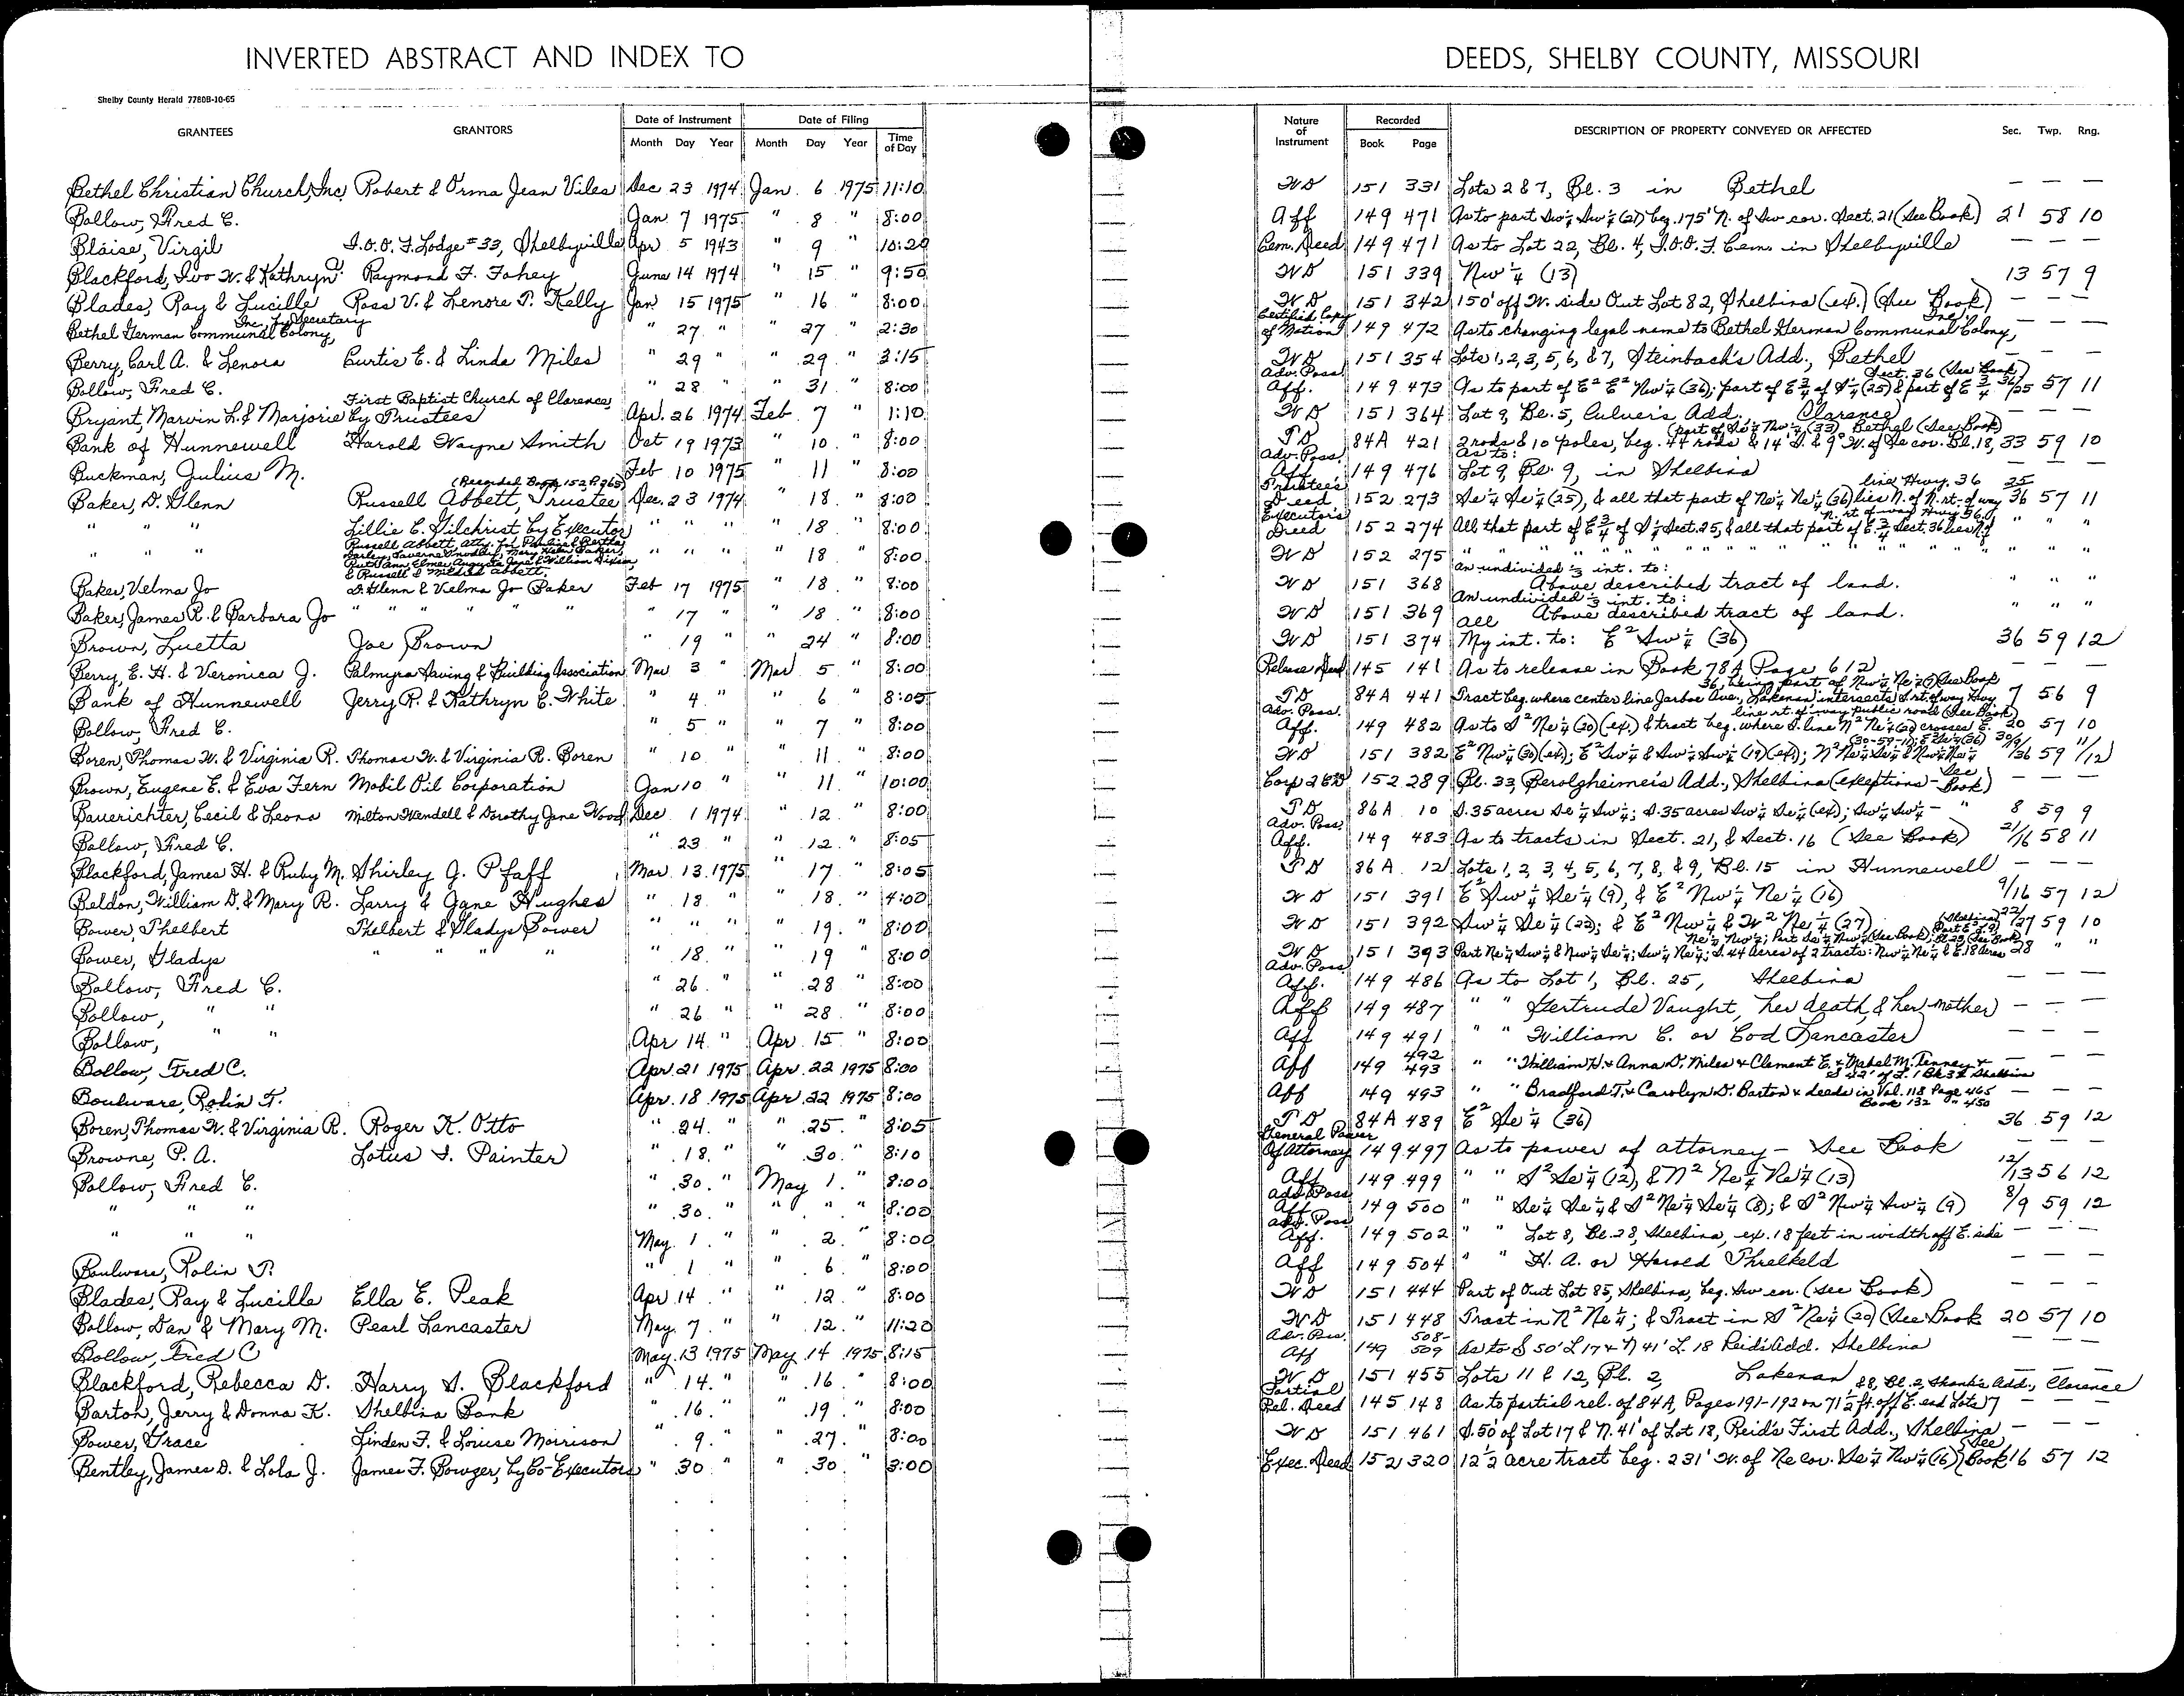 INVERTED ABSTRACT AND INDEX TO DEEDS, SHELBY COUNTY, MISSOURI
Shelby County Herald 7780B-10-65
GRANTEES GRANTORS Date of Instrument Date of Filing Nature of Instrument Recorded DESCRIPTION OF PROPERTY CONVEYED OR AFFECTED Sec. Twp. Rng.
Month Day Year Month Day Year Time of Day Book Page
Bethel Christian Church, Inc. Robert & Orma Jean Viles Dec 23 1974 Jan. 6 1975 11:10 WD 151 331 Lots 2 & 7, Bl. 3 in Bethel — — —
Bollow, Fred C. Jan. 7 1975 " 8 " 8:00 Aff 149 471 As to part Sw¼ Sw¼ (21) beg. 175' N. of Sw cor. Sect. 21 (See Book) 21 58 10
Blaise, Virgil I.O.O.F. Lodge #33, Shelbyville Apr 5 1943 " 9 " 10:20 Cem. Deed 149 471 As to Lot 22, Bl. 4, I.O.O.F. Cem. in Shelbyville — — —
Blackford, Ivo W. & Kathryn Raymond F. Fohey June 14 1974 " 15 " 9:50 WD 151 339 Nw ¼ (13) 13 57 9
Blades, Ray & Lucille Ross V. & Lenore P. Kelly Jan 15 1975 " 16 " 8:00 WD 151 342 150' off W. side Out Lot 82, Shelbina (ex.) (See Book) — — —
Bethel German Communal Colony, Inc. by Secretary " 27 " " 27 " 2:30 Certified Copy of Motion 149 472 As to changing legal name to Bethel German Communal Colony, Inc. — — —
Berry, Carl A. & Lenora Curtis E. & Linda Miles " 29 " " 29 " 3:15 WD 151 354 Lots 1, 2, 3, 5, 6, & 7, Steinbach's Add., Bethel — — —
Bollow, Fred C. " 28 " " 31 " 8:00 Adv. Poss. Aff. 149 473 As to part of E² E² Nw¼ (36); part of E¾ of S½ (25) & part of E ¾ Sect. 36 (See Book) 36/25 57 11
Bryant, Marvin L. & Marjorie First Baptist Church of Clarence, by Trustees Apr. 26 1974 Feb 7 " 1:10 WD 151 364 Lot 9, Bl. 5, Culver's Add., Clarence — — —
Bank of Hunnewell Harold Wayne Smith Oct 19 1973 " 10 " 8:00 TD 84A 421 2 rods & 10 poles, beg. 44 rods & 14' S. & 9° W. of Se cor. Bl. 18, (part of Se¼ Nw¼ (33), Bethel (See Book) 33 59 10
Buckman, Julius M. Feb 10 1975 " 11 " 8:00 Adv. Poss. Aff 149 476 As to: Lot 9, Bl. 9, in Shelbina — — —
Baker, D. Glenn (Recorded Book 152, P. 265) Russell Abbett, Trustee Dec. 23 1974 " 18 " 8:00 Trustee's Deed 152 273 Se¼ Se¼ (25), & all that part of Ne¼ Ne¼ (36) lies N. of N. rt. of way line Hwy. 36 25/36 57 11
" " " Lillie C. Gilchrist by Executor " " " " 18 " 8:00 Executor's Deed 152 274 All that part of E¾ of S½ Sect. 25, & all that part of E ¾ Sect. 36 lies N. of N. rt. of way Hwy 36 " " "
" " " Russell Abbett, Atty. for & Russell & Mildred Abbett " " " " 18 " 8:00 WD 152 275 " " " " " " " " "
Baker, Velma Jo D. Glenn & Velma Jo Baker Feb 17 1975 " 18 " 8:00 WD 151 368 an undivided ⅓ int. to: Above described tract of land. " " "
Baker, James R. & Barbara Jo " " " " " " 17 " " 18 " 8:00 WD 151 369 an undivided ⅓ int. to: Above described tract of land. " " "
Brown, Luetta Joe Brown " 19 " " 24 " 8:00 WD 151 374 all My int. to: E² Sw¼ (36) 36 59 12
Berry, E. H. & Veronica J. Palmyra Saving & Building Association Mar 3 " Mar 5 " 8:00 Release Deed 145 141 As to release in Book 78A Page 612 — — —
Bank of Hunnewell Jerry R. & Kathryn C. White " 4 " " 6 " 8:05 TD 84A 441 Tract beg. where center line Jarboe Ave., Lakenan intersects S. rt. of way Hwy 36, being part of Nw¼ Ne¼ (7) See Book 7 56 9
Bollow, Fred C. " 5 " " 7 " 8:00 Adv. Poss. Aff. 149 482 As to S² Ne¼ (20) (ex.) & tract beg. where S. line N² Ne¼ (20) crosses E. line rt. of way public road (See Book) 20 57 10
Boren, Thomas W. & Virginia R. Thomas W. & Virginia R. Boren " 10 " " 11 " 8:00 WD 151 382 E² Nw¼ (30) (ex); E² Sw¼ & Sw¼ Sw¼ (19) (ex); N² Ne¼ Se¼ & Nw¼ Ne¼ (30-59-11); E² Se¼ (36) 30/19/36 59 11/12
Brown, Eugene E. & Eva Fern Mobil Oil Corporation Jan 10 " " 11 " 10:00 Corp 2 CD 152 289 Bl. 33, Berolzheimer's Add., Shelbina (exceptions - See Book) — — —
Bauerichter, Cecil & Leona Milton Wendell & Dorothy Jane Wood Dec 1 1974 " 12 " 8:00 TD 86A 10 S. 35 acres Se¼ Sw¼; S. 35 acres Sw¼ Se¼ (ex); Sw¼ Sw¼ - " 8 59 9
Bollow, Fred C. " 23 " " 12 " 8:05 Adv. Poss. Aff. 149 483 As to tracts in Sect. 21, & Sect. 16 (See Book) 21/16 58 11
Blackford, James H. & Ruby M. Shirley J. Pfaff Mar. 13 1975 " 17 " 8:05 TD 86A 12 Lots 1, 2, 3, 4, 5, 6, 7, 8, & 9, Bl. 15 in Hunnewell — — —
Beldon, William D. & Mary R. Larry & Jane Hughes " 18 " " 18 " 4:00 WD 151 391 E² Sw¼ Se¼ (9), & E² Nw¼ Ne¼ (16) 9/16 57 12
Bower, Thelbert Thelbert & Gladys Bower " " " " 19 " 8:00 WD 151 392 Sw¼ Se¼ (22); & E² Nw¼ & W² Ne¼ (27) 22/27 59 10
Bower, Gladys " " " " " 18 " " 19 " 8:00 WD 151 393 Part Ne¼ Sw¼ & Nw¼ Se¼; Sw¼ Ne¼; S. 44 acres of 2 tracts: Nw¼ Ne¼ & E. 18 acres Ne¼ Nw¼; Part Se¼ Nw¼ (See Book); Bl. 23, (See Book) 28 " "
Bollow, Fred C. " 26 " " 28 " 8:00 Adv. Poss. Aff. 149 486 As to Lot 1, Bl. 25, Shelbina — — —
Bollow, " " " 26 " " 28 " 8:00 Aff 149 487 " " Gertrude Vaught, her death, & her mother — — —
Bollow, " " Apr 14 " Apr. 15 " 8:00 Aff 149 491 " " William C. or Cod Lancaster — — —
Bollow, Fred C. Apr. 21 1975 Apr. 22 1975 8:00 Aff 149 492 493 " " William H. & Anna D. Miles & Clement E. & Mabel M. Tenney & S 42' of L. 1 Bk 33 Shelbina — — —
Boulware, Rolin T. Apr. 18 1975 Apr. 22 1975 8:00 Aff 149 493 " " Bradford T. & Carolyn D. Barton & deeds in Vol. 118 Page 465 Book 132 " 450 — — —
Boren, Thomas W. & Virginia R. Roger K. Otto " 24 " " 25 " 8:05 TD 84A 489 E² Se ¼ (36) 36 59 12
Browne, P. A. Lotus I. Painter " 18 " " 30 " 8:10 General Power Of Attorney 149 497 As to power of attorney - See Book — — —
Bollow, Fred C. " 30 " May 1 " 8:00 Aff 149 499 " " S² Se¼ (12), & N² Ne¼ Ne¼ (13) 12/13 56 12
" " " " 30 " " " " 8:00 Adv. Poss Aff 149 500 " " Se¼ Se¼ & S² Ne¼ Se¼ (8); & S² Nw¼ Sw¼ (9) 8/9 59 12
" " " May 1 " " 2 " 8:00 Adv. Poss Aff. 149 502 " " Lot 8, Bl. 28, Shelbina, ex. 18 feet in width off E. side — — —
Boulware, Rolin T. " 1 " " 6 " 8:00 Aff 149 504 " " H. A. or Harold Threlkeld — — —
Blades, Ray & Lucille Ella E. Peak Apr 14 " " 12 " 8:00 WD 151 444 Part of Out Lot 85, Shelbina, beg. Sw cor. (See Book) — — —
Bollow, Dan & Mary M. Pearl Lancaster May 7 " " 12 " 11:20 WD 151 448 Tract in N² Ne¼; & Tract in S² Ne¼ (20) (See Book 20 57 10
Bollow, Fred C May 13 1975 May 14 1975 8:15 Adv. Poss. Aff 149 508-509 As to S 50' L 17 & N 41' L. 18 Reid's Add. Shelbina — — —
Blackford, Rebecca D. Harry S. Blackford " 14 " " 16 " 8:00 WD 151 455 Lots 11 & 12, Bl. 2, Lakenan — — —
Barton, Jerry & Donna K. Shelbina Bank " 16 " " 19 " 8:00 Partial Rel. Deed 145 148 As to partial rel. of 84A, Pages 191-192 on 71½ ft. off E. end Lots 7 & 8, Bl. 2, Shank's Add., Clarence — — —
Bower, Grace Linden F. & Louise Morrison " 9 " " 27 " 8:00 WD 151 461 S. 50' of Lot 17 & N. 41' of Lot 18, Reid's First Add., Shelbina — — —
Bentley, James D. & Lola J. James F. Bowzer, by Co-Executors " 30 " " 30 " 3:00 Exec. Deed 152 320 12½ acre tract beg. 231' W. of Ne cor. Se¼ Nw¼ (16) (See Book 16 57 12